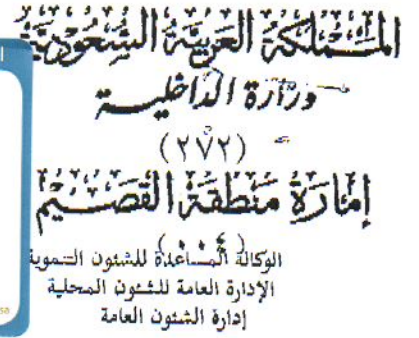 المملكة العربية السعودية
وزارة الداخلية
(٢٧٢)
إمارة منطقة القصيم
(٠٠٤)
الوكالة المساعدة للشئون التنموية
الإدارة العامة للشئون المحلية
إدارة الشئون العامة